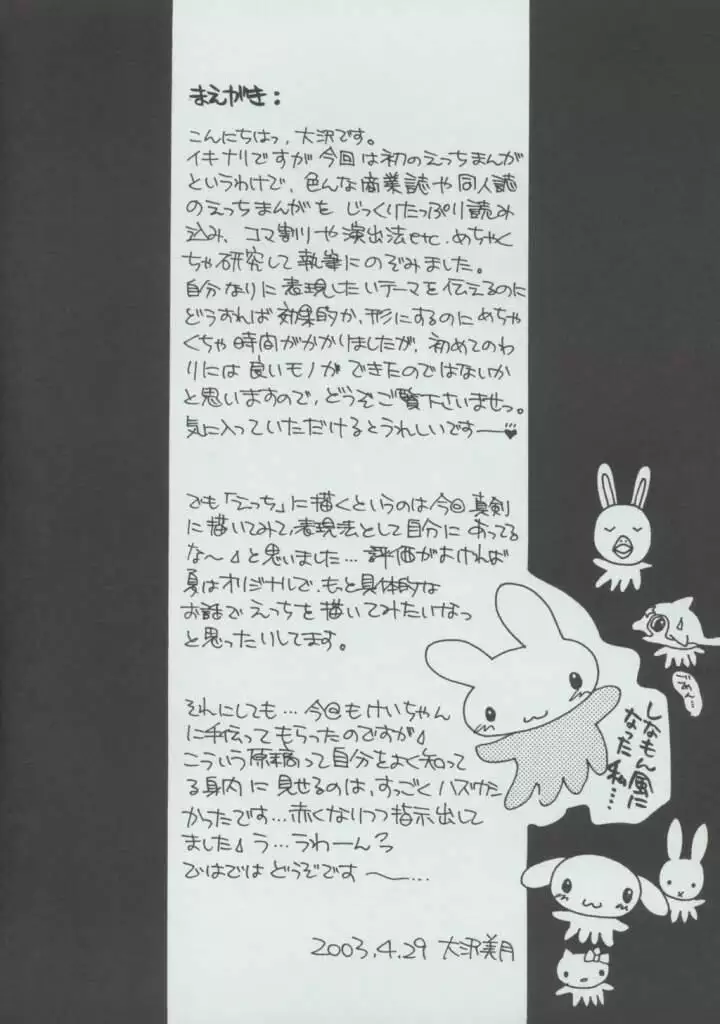 まえがき:
こんにちはっ,大沢です。
イキナリですが今回は初のえっちまんが
というわけで、色んな商業誌や同人誌
のえっちまんがを じっくりたっぷり読み
込み、コマ割りや演出法etc.めちゃく
ちゃ研究して執筆にのぞみました。
自分なりに表現したいテーマを伝えるのに
どうすれば効果的か、形にするのにめちゃ
くちゃ時間がかかりましたが、初めてのわ
りには良いモノができたのではないか
と思いますので、どうぞご覧下さいませっ。
気に入っていただけるとうれしいですー♥
でも「えっち」に描くというのは今回真剣
に描いてみて、表現法として自分にあってる
な〜♪と思いました…評価がよければ
夏はオリジナルで、もっと具体的な
お話でえっちを描いてみたいなっ
と思ったりしてます。
それにしても…今回もけいちゃん
に手伝ってもらったのですが♪
こういう原稿って自分をよく知って
る身内に見せるのは、すっごくハズかし
かったです…赤くなりつつ指示出して
ました♪う…うわーんろ
ではではどうぞです〜…
2003.4.29 大沢美月
ごめん…
しなもん風に
なった私…